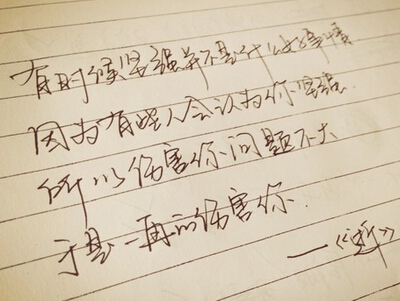 有时候坚强并不是什么好事情
因为有些人会认为你坚强.
所以伤害你问题不大
于是一再的伤害你.